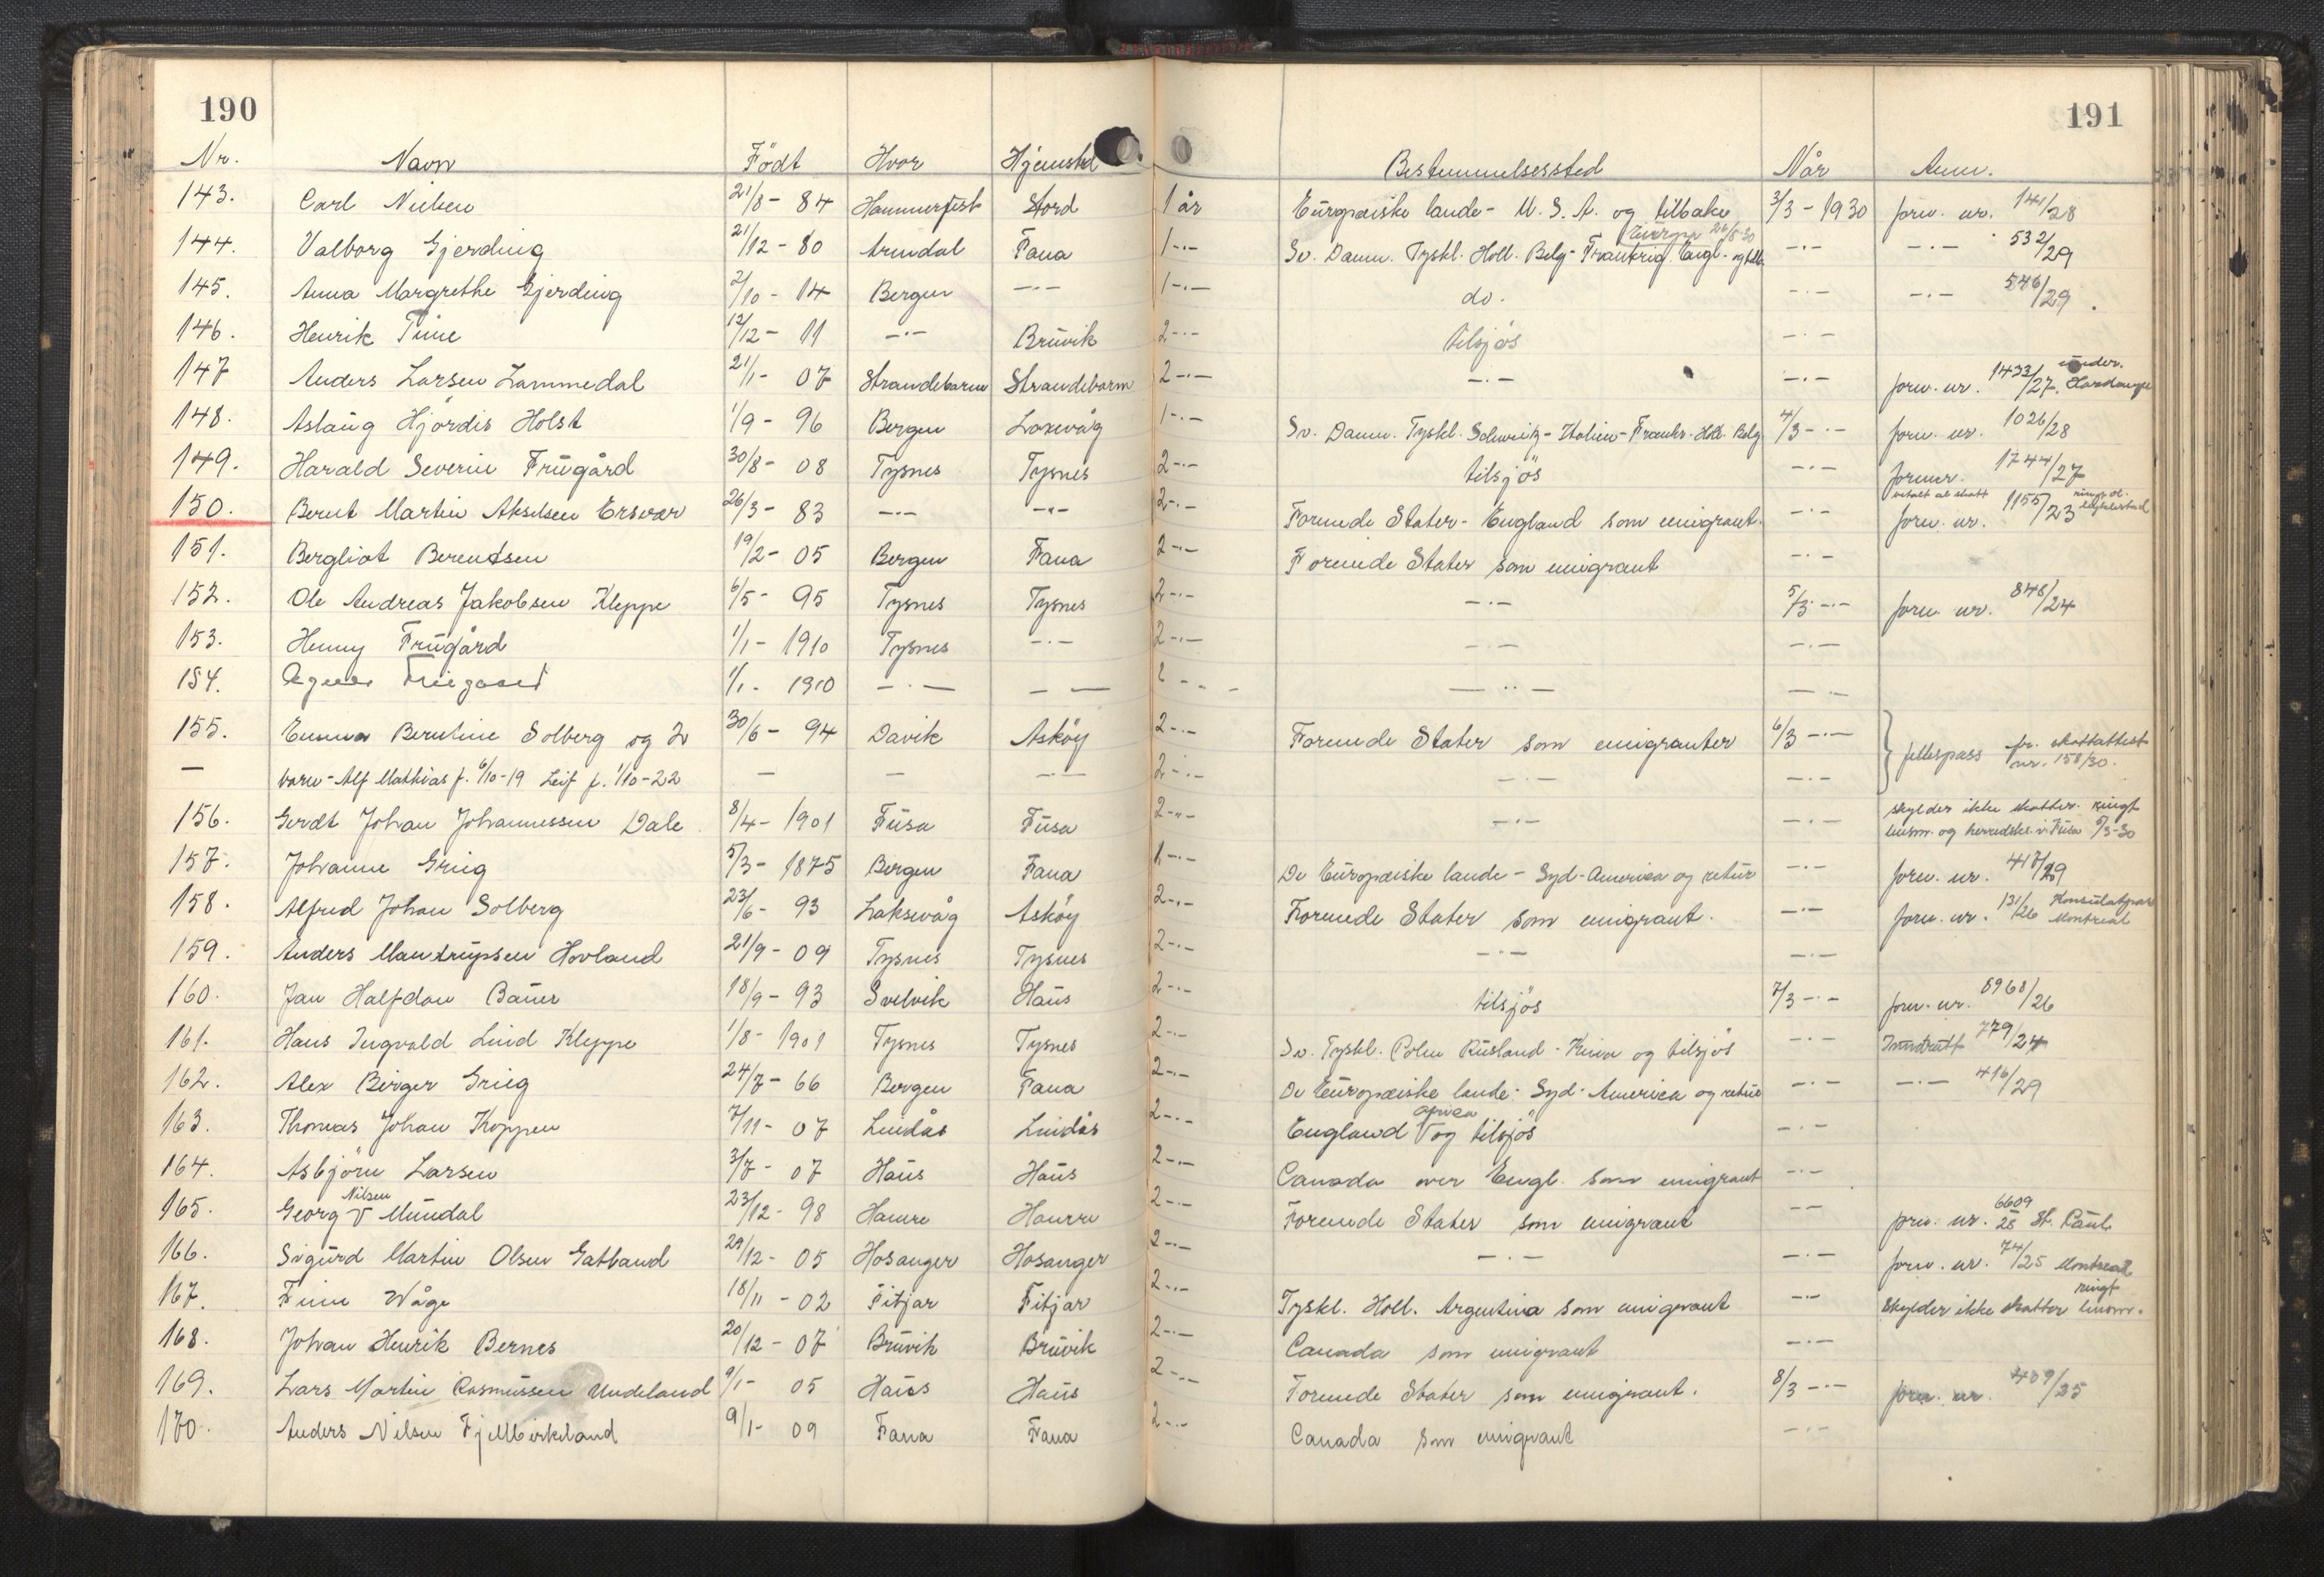 190
191
Nr. Navn Födt Hvor Hjemsted Bestemmelsessted Når Anm.
143. Carl Nielsen 21/8 - 84 Hammerfest Stord 1 år Europæiske lande - U.S.A. og tilbake 3/3 - 1930 forn. nr. 141/28
Europa 26/5-30
144. Valborg Gjerding 21/12 - 80 Arendal Fana 1 -.- Sv. Danm. Tyskl. Holl. Belg - Frankrig. Engl - og tilb. -.- -.- 532/29
145. Anna Margrethe Gjerding 2/10 - 14 Bergen -.- 1 -.- do. -.- -.- 546/29.
146. Henrik Tüne 12/12 - 11 -.- Brüvik 2 -.- tilsjös -.-
147 Anders Larsen Lammedal 21/1 - 07 Strandebarm Strandebarm 2 -.- -.- -.- forn. nr. 1433/27. under. Hardanger
148. Aslaüg Hjördis Holst 1/9 - 96 Bergen Laxevåg 1 -.- Sv. Danm. Tyskl. Schweitz - Italien - Frankr. Holl. Belg 4/3 -.- forn. nr. 1026/28
149. Harald Severin Früigård 30/8 - 08 Tysnes Tysnes 2 -.- tilsjös -.- fornr. 1744/27
150. Bernt Martin Akselsen Ersvær 26/3 - 83 -.- -.- 2 -.- Forenede Stater - England som emigrant. -.- betalt al skatt forn. nr. 1155/23
151. Bergliot Berentsen 19/2 - 05 Bergen Fana 2 -.- Forenede Stater som emigrant -.-
152. Ole Andreas Jakobsen Kleppe 6/5 - 95 Tysnes Tysnes 2 -.- -.- 5/3 -.- forn. nr. 848/24
153. Henny Früigård 1/1 - 1910 Tysnes -.- 2 -.- -.- -.-
154. Agnes Friegaard 1/1 - 1910 -.- - - 2 - - - -..- -.-
155. Emma Berntine Solberg og 2 30/6 - 94 Davik Asköy 2 -.- Forenede Stater som emigranter 6/3 -.- fellespass fr. skattattest nr. 158/30.
- barn - Alf Mathias f. 6/10-19 Leif f. 1/10-22 - - -.- 2 -.- -.- -.-
156. Gerdt Johan Johannessen Dale 8/4 - 1901 Füsa Füsa 2 -.- -.- -.- skylder ikke skatter. ringt
lensm. og herredsk. i Füsa 6/3-30
157. Johanne Grieg 5/3 - 1875 Bergen Fana 1 -.- De Europæiske lande - Syd-America og retür -.- forn. nr. 417/29
158. Alfred Johan Solberg 23/6 - 93 Laksevåg Asköy 2 -.- Forenede Stater som emigrant. -.- forn. nr. 131/26 Konsülatpass Montreal
159. Anders Mandrüpsen Hovland 21/9 - 09 Tysnes Tysnes 2 -.- -.- -.-
160. Jan Halfdan Baüer 18/9 - 93 Svelvik Haüs 2 -.- tilsjös 7/3 -.- forn. nr. 8968/26
161. Hans Ingvald Lind Kleppe 1/8 - 1901 Tysnes Tysnes 2 -.- Sv. Tyskl. Polen Rüsland - Kina og tilsjös -.- 779/24
162. Alex Birger Grieg 24/7 - 66 Bergen Fana 2 -.- De Europæiske lande - Syd-America og retür -.- -.- 416/29
163. Thomas Johan Koppen 7/11 - 07 Lindås Lindås 2 -.- England africa og tilsjös -.-
164. Asbjörn Larsen 3/7 - 07 Haüs Haüs 2 -.- Canada over Engl. som emigrant -.-
165. Georg Nilsen Mündal 23/12 - 98 Hamre Hamre 2 -.- Forenede Stater som emigrant -.- forn. nr. 6609/28 St. Paül
166. Sigürd Martin Olsen Gatland 29/12 - 05 Hosanger Hosanger 2 -.- -.- -.- forn. nr. 74/25 Montreal
167. Finn Våge 18/11 - 02 Fitjar Fitjar 2 -.- Tyskl. Holl. Argentina som emigrant -.- skylder ikke skatter ringt lensm.
168. Johan Henrik Bernes 20/12 - 07 Brüvik Brüvik 2 -.- Canada som emigrant -.-
169. Lars Martin Rasmüssen Undeland 9/1 - 05 Haüs Haüs 2 -.- Forenede Stater som emigrant. 8/3 -.- forn. nr. 409/25
170. Anders Nilsen Fjellbirkeland 9/1 - 09 Fana Fana 2 -.- Canada som emigrant -.-